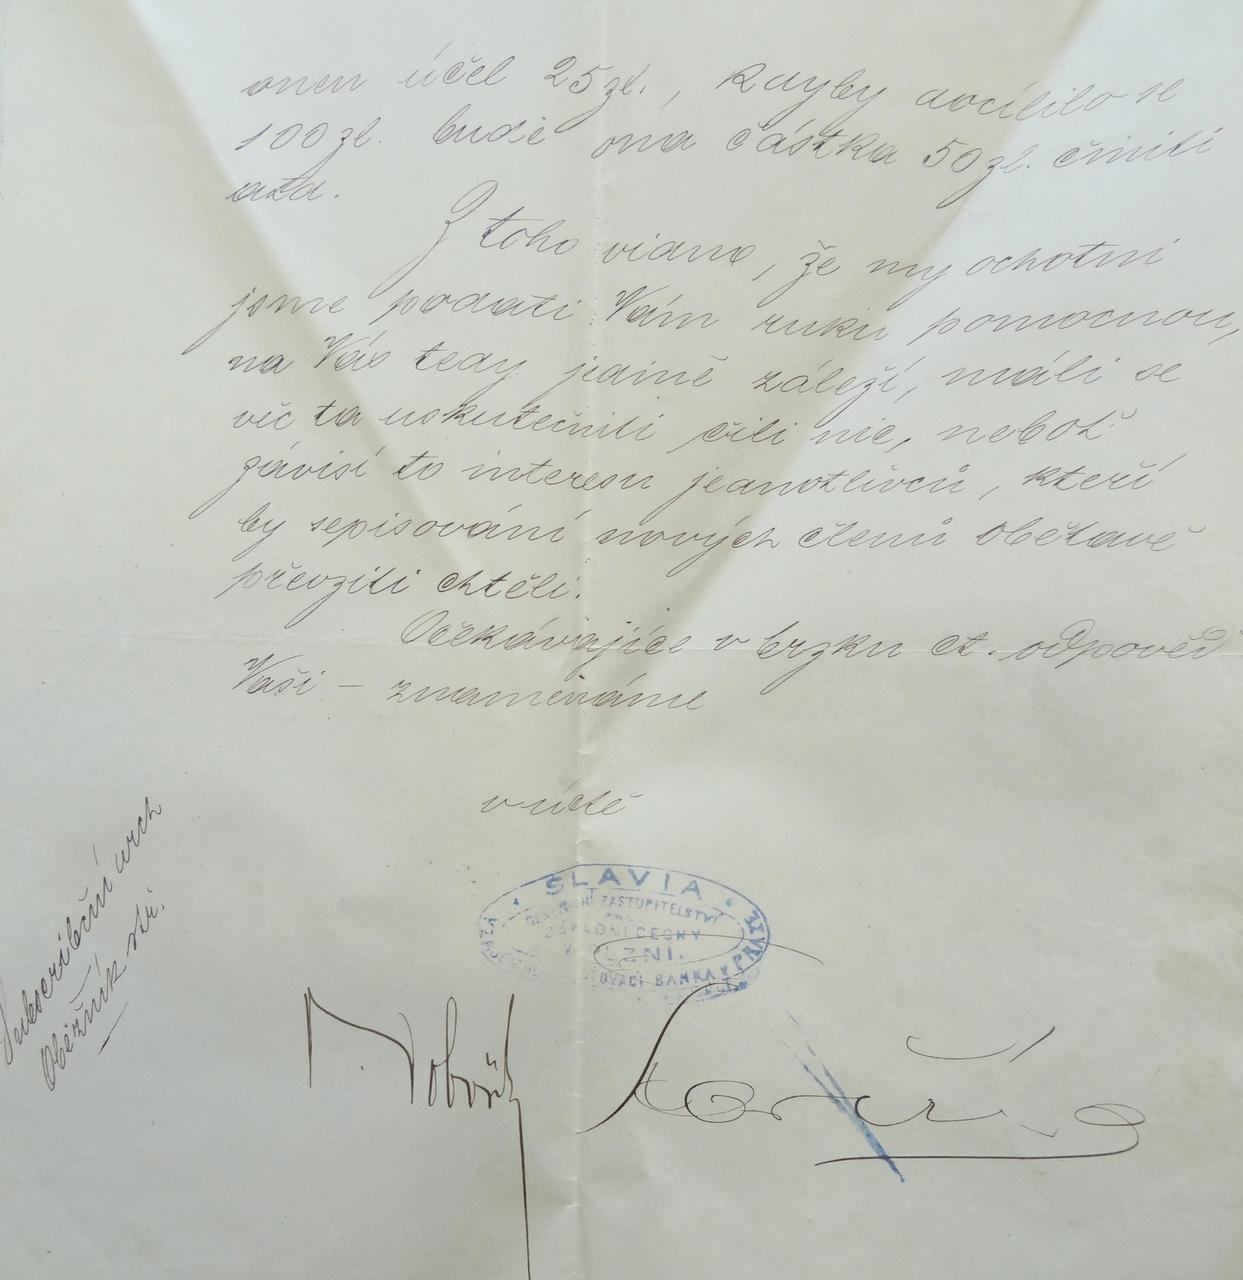 onen účel 25 zl., kdyby docílilo se
100 zl. bude ona částka 50 zl. činiti
atd.
Z toho vidno, že my ochotni
jsme podati Vám ruku pomocnou,
na Vás tedy jedině záleží, máli se
věc ta uskutečniti čili nic, neboť
závisí to interesu jednotlivců, kteří
by sepisování nových členů obětavě
převziti chtěli.
Očekávajíce v brzku ct. odpověď
Vaši – znamenáme
v úctě
SLAVIA
GENERÁLNÍ ZASTUPITELSTVÍ
PRO
ZÁPADNÍ ČECHY
V PLZNI.
BANKA V PRAZE
Subscribční arch
Oběžník